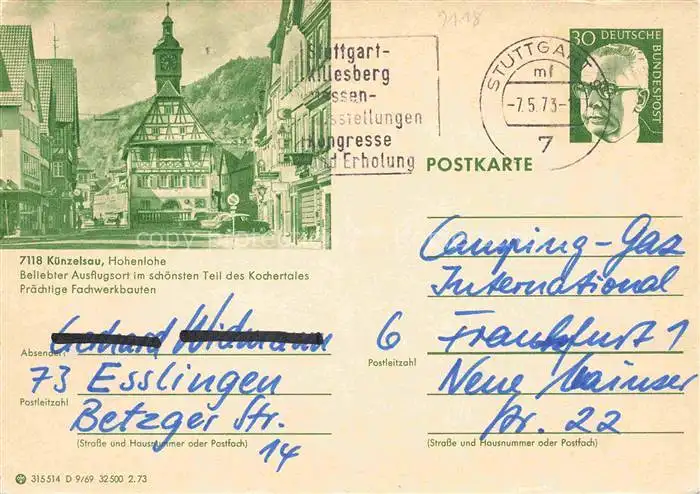 9718
Stuttgart-
Killesberg
Messen-
Ausstellungen
Kongresse
und Erholung
STUTTGART
mf
-7.5.73-
7
30 DEUTSCHE
BUNDESPOST
POSTKARTE
7118 Künzelsau, Hohenlohe
Beliebter Ausflugsort im schönsten Teil des Kochertales
Prächtige Fachwerkbauten
Absender:
Gerhard Widmann
73 Esslingen
Postleitzahl
Betzger Str.
14
(Straße und Hausnummer oder Postfach)
Camping-Gaz
International
6 Frankfurt 1
Postleitzahl
Neue Mainzer
Str. 22
(Straße und Hausnummer oder Postfach)
315514 D 9/69 32500 2.73